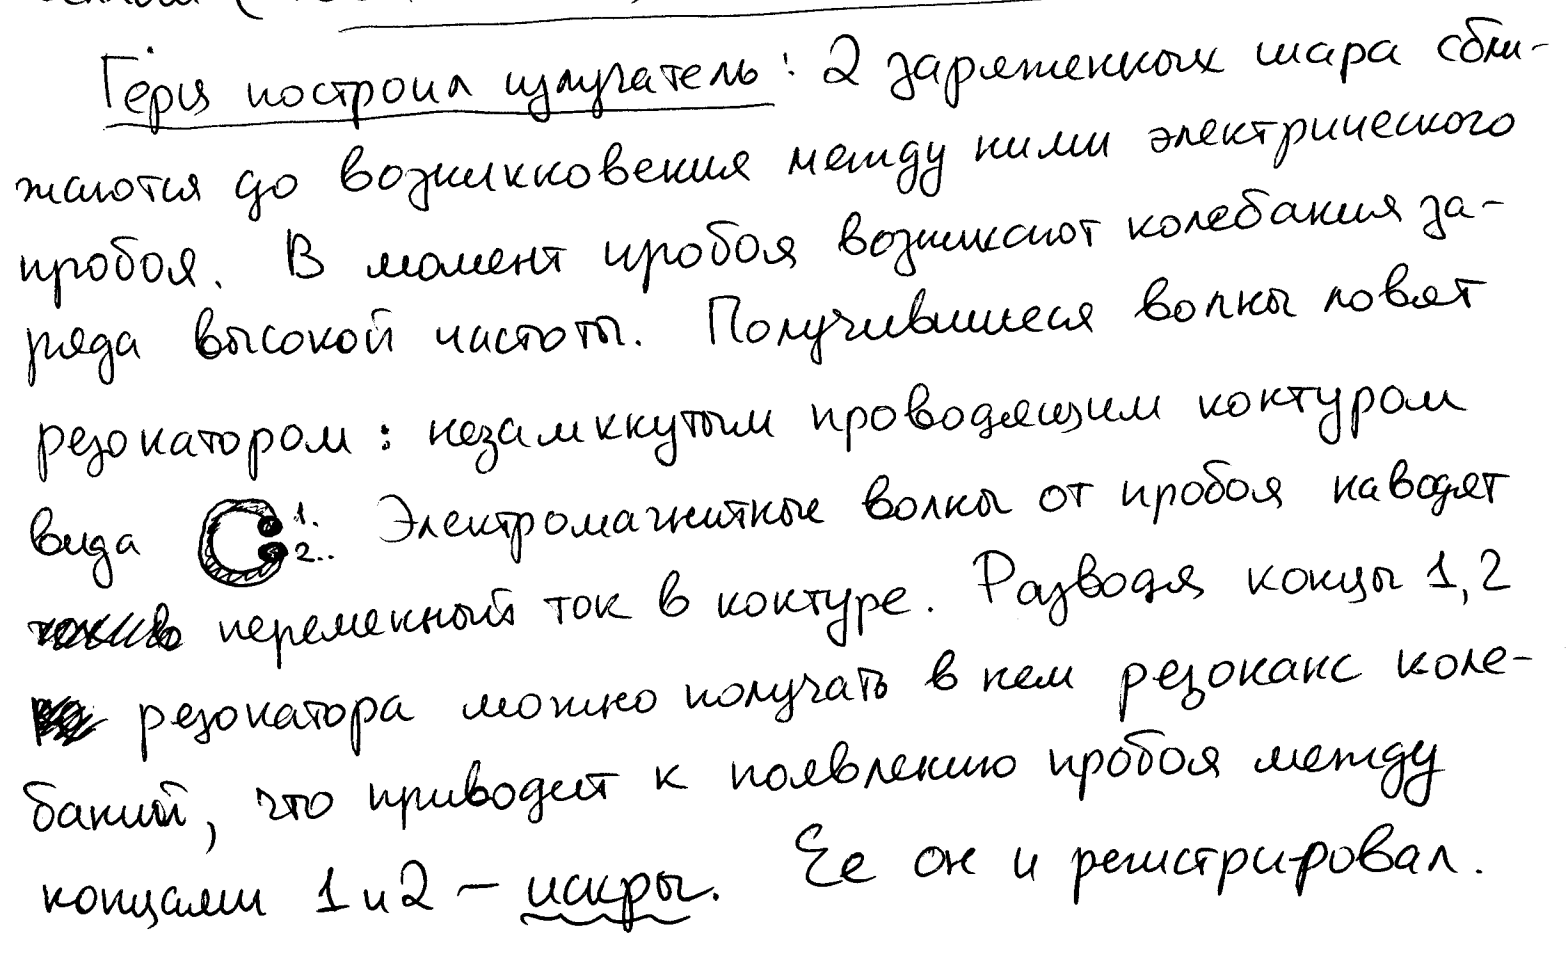 Герц построил излучатель: 2 заряженных шара сбли-
жаются до возникновения между ними электрического
пробоя. В момент пробоя возникают колебания за-
ряда высокой частоты. Получившиеся волны ловят
резонатором: незамкнутым проводящим контуром
вида 1. 2.. Электромагнитные волны от пробоя наводят
переменный ток в контуре. Разводя концы 1,2
резонатора можно получать в нем резонанс коле-
баний, что приводит к появлению пробоя между
концами 1 и 2 – искры. Ее он и регистрировал.